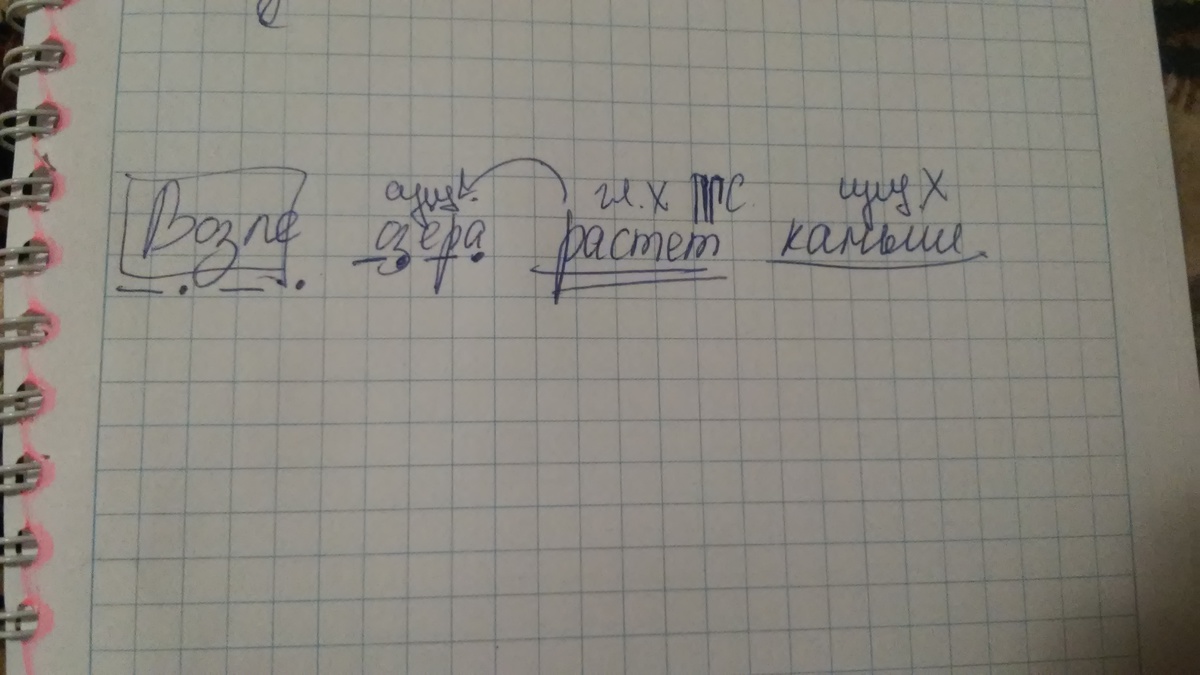 сущ. гл. х С. сущ х
Возле озера растет камыш